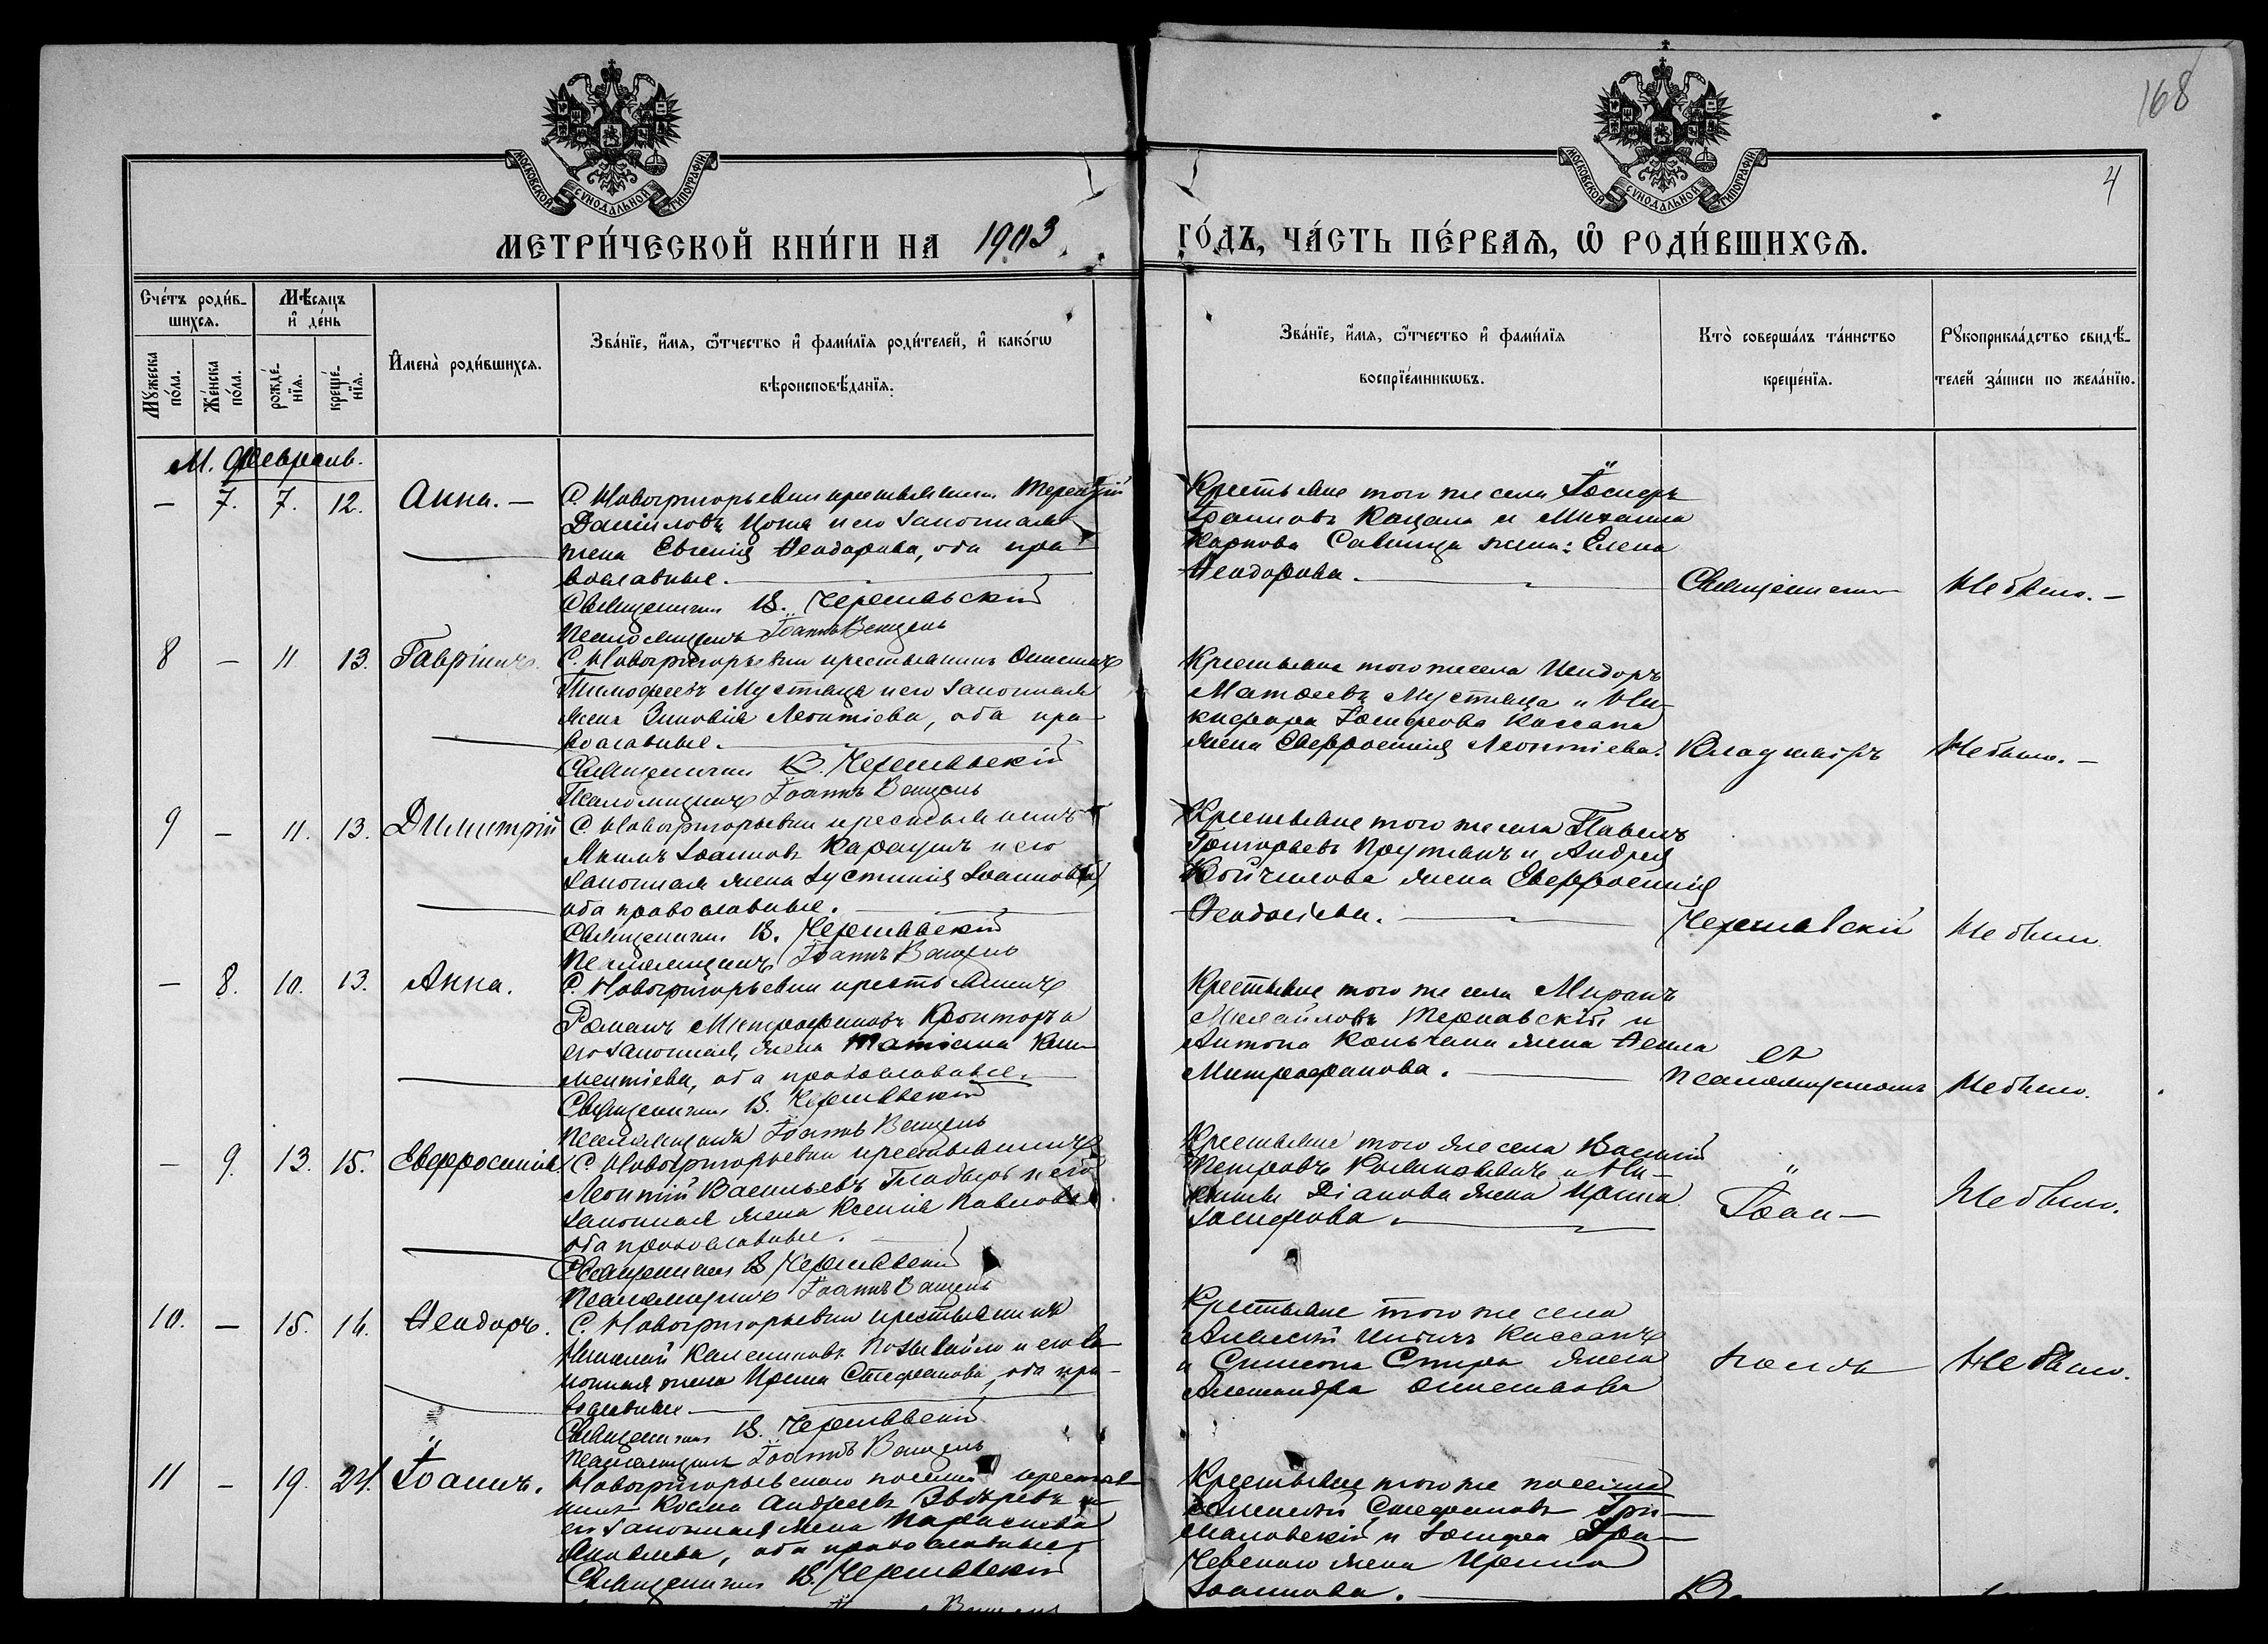 168
4
МОСКОВСКОЙ СѴНОДАЛЬНОЙ ТИПОГРАФІИ.
МОСКОВСКОЙ СѴНОДАЛЬНОЙ ТИПОГРАФІИ.
МЕТРИ́ЧЕСКОЙ КНИ́ГИ НА 1903 ГО́ДЪ, ЧА́СТЬ ПЕ́РВАЯ, Ѡ РОДИ́ВШИХСЯ.
Сче́тъ роди́в-
шихся.
Мꙋ́жеска по́ла.
Же́нска по́ла.
Мѣ́сяцъ
и҆ де́нь
рожде́-
нїя.
креще́-
нїя.
И҆мена̀ роди́вшихся.
Зва́нїе, и҆́мя, ѻ҆́тчество и҆ фами́лїя роди́телей, и҆ како́гѡ
вѣроисповѣ́данїя.
Зва́нїе, и҆́мя, ѻ҆́тчество и҆ фами́лїя
воспрїе́мникѡвъ.
Кто̀ соверша́лъ та́инство
креще́нїя.
Рꙋкоприкла́дство свидѣ́-
телей за́писи по жела́нїю.
М. Февраль.
— 7. 7. 12. Анна. —
С. Новогригорьевки крестьянинъ Терентій
Даніиловъ Цопа и его законная
жена Евгенія Ѳеодорова, оба пра-
вославные.
Священникъ В. Чернявскій
Псаломщикъ Іоаннъ Венцель
Крестьяне того же села Іосифъ
Іоанновъ Кацапъ и Михаила
Карпова Савицка жена: Елена
Ѳеодорова.
Священник
Не было. —
8 — 11 13. Гавріилъ.
С. Новогригорьевки крестьянинъ Онисимъ
Тимофеевъ Мустяца и его законная
жена Зиновія Леонтіева, оба пра-
вославные.
Священникъ В. Чернявскій
Псаломщикъ Іоаннъ Венцель
Крестьяне того же села Исидоръ
Матѳеевъ Мустяца и Ни-
кифора Іосифова Кассапа
жена Евфросинія Леонтіева.
Владиміръ
Не было. —
9 — 11. 13. Димитрій
С. Новогригорьевки крестьянинъ
Іоанновъ Караулъ и его
законная жена Іустинія Іоаннова,
оба православные.
Священникъ В. Чернявскій
Псаломщикъ Іоаннъ Венцель
Крестьяне того же села Павелъ
Григорьевъ Прутянъ и Андрея
жена Евфросинія
Ѳеодосіева.
Чернявскій
Не было
— 8. 10. 13. Анна.
С. Новогригорьевки крестьянинъ
Романъ Митрофановъ Кронторъ и
его законная жена Татіана Кли-
ментіева, оба православные.
Священникъ В. Чернявскій
Псаломщикъ Іоаннъ Венцель
Крестьяне того же села Миронъ
Михайловъ Терновскій и
Антона жена Ѳекла
Митрофанова.
съ
псаломщикомъ
Не было.
— 9. 13. 15. Евфросинія
С. Новогригорьевки крестьянинъ
Леонтій Васильевъ Гладышъ и его
законная жена Ксенія Павлова
оба православные.
Священникъ В. Чернявскій
Псаломщикъ Іоаннъ Венцель
Крестьяне того же села Василій
Петровъ и Ни-
киты Діанова жена Ирина
Іосифова.
Іоан—
Не было.
10. — 15. 16. Ѳеодоръ.
С. Новогригорьевки крестьянинъ
Николай Каленниковъ Позывайло и его за-
конная жена Ирина Стефанова, оба пра-
вославные
Священникъ В. Чернявскій
Псаломщикъ Іоаннъ Венцель
Крестьяне того же села
Алексій Кассапъ
и Симеона Спира жена
Александра Онисимова
номъ
Не было.
11 — 19. 24. Іоаннъ.
Новогригорьевского крестья-
нинъ Косма Андреевъ Звѣревъ и
его законная жена Параскева
Яковлева, оба православные
Священникъ В. Чернявскій
Крестьяне того же
Алексій Стефановъ Гри-
маловскій и Іосифа Гра-
чевского жена Ирина
Іоаннова.